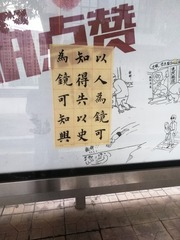 点赞
以人為鏡可
知得失以史
為鏡可知興